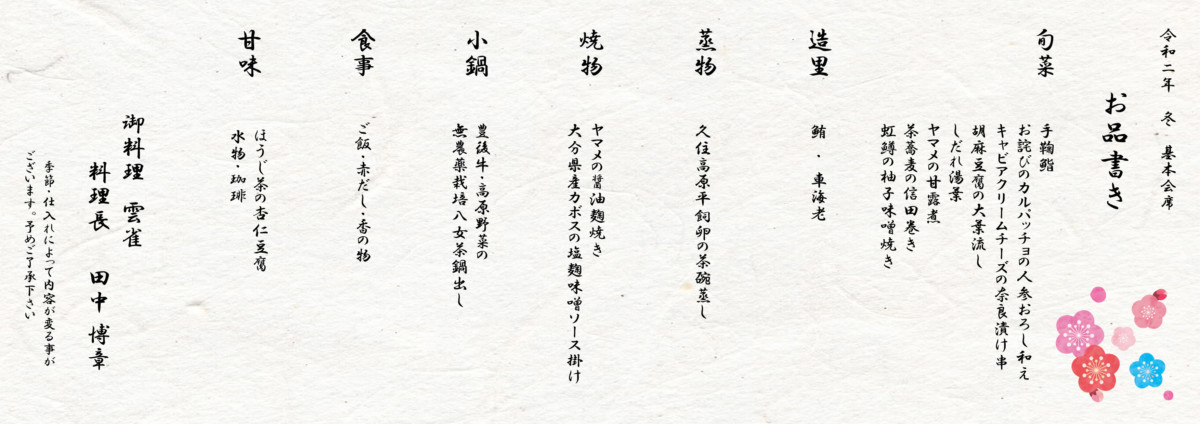 令和二年 冬 基本会席
お品書き
旬菜
手鞠鮨
お詫びのカルパッチョの人参おろし和え
キャビアクリームチーズの奈良漬け串
胡麻豆腐の大葉流し
しだれ湯葉
ヤマメの甘露煮
茶蕎麦の信田巻き
虹鱒の柚子味噌焼き
造里
鮪・車海老
蒸物
久住高原平飼卵の茶碗蒸し
焼物
ヤマメの醤油麹焼き
大分県産カボスの塩麹味噌ソース掛け
小鍋
豊後牛・高原野菜の
無農薬栽培八女茶鍋出し
食事
ご飯・赤だし・香の物
甘味
ほうじ茶の杏仁豆腐
水物・珈琲
御料理 雲雀
料理長 田中博章
季節・仕入れによって内容が変る事が
ございます。予めご了承下さい